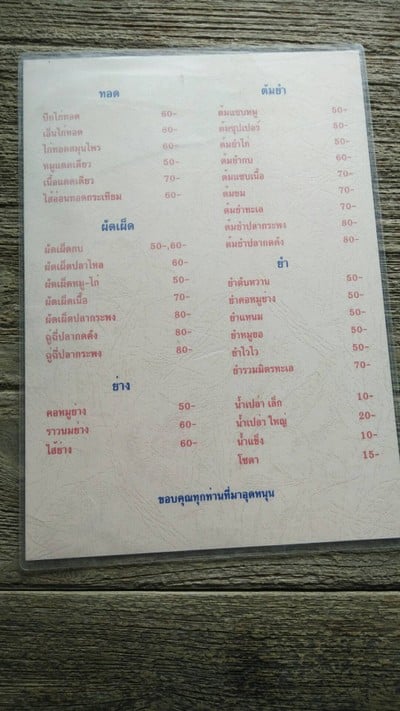 ทอด
ปีกไก่ทอด 60-
เอ็นไก่ทอด 60-
ไก่ทอดสมุนไพร 60-
หมูแดดเดียว 50-
เนื้อแดดเดียว 70-
ไส้อ่อนทอดกระเทียม 60-
ผัดเผ็ด
ผัดเผ็ดกบ 50-,60-
ผัดเผ็ดปลาไหล 60-
ผัดเผ็ดหมู-ไก่ 50-
ผัดเผ็ดเนื้อ 70-
ผัดเผ็ดปลากระพง 80-
ฉู่ฉี่ปลากดคัง 80-
ฉู่ฉี่ปลากระพง 80-
ย่าง
คอหมูย่าง 50-
ราวนมย่าง 60-
ไส้ย่าง 60-
ต้มยำ
ต้มแซบหมู 50-
ต้มซุปเปอร์ 50-
ต้มยำไก่ 50-
ต้มยำกบ 60-
ต้มแซบเนื้อ 70-
ต้มขม 70-
ต้มยำทะเล 70-
ต้มยำปลากระพง 80-
ต้มยำปลากดคัง 80-
ยำ
ยำตับหวาน 50-
ยำคอหมูย่าง 50-
ยำแหนม 50-
ยำหมูยอ 50-
ยำไวไว 50-
ยำรวมมิตรทะเล 70-
น้ำเปล่า เล็ก 10-
น้ำเปล่า ใหญ่ 20-
น้ำแข็ง 10-
โซดา 15-
ขอบคุณทุกท่านที่มาอุดหนุน